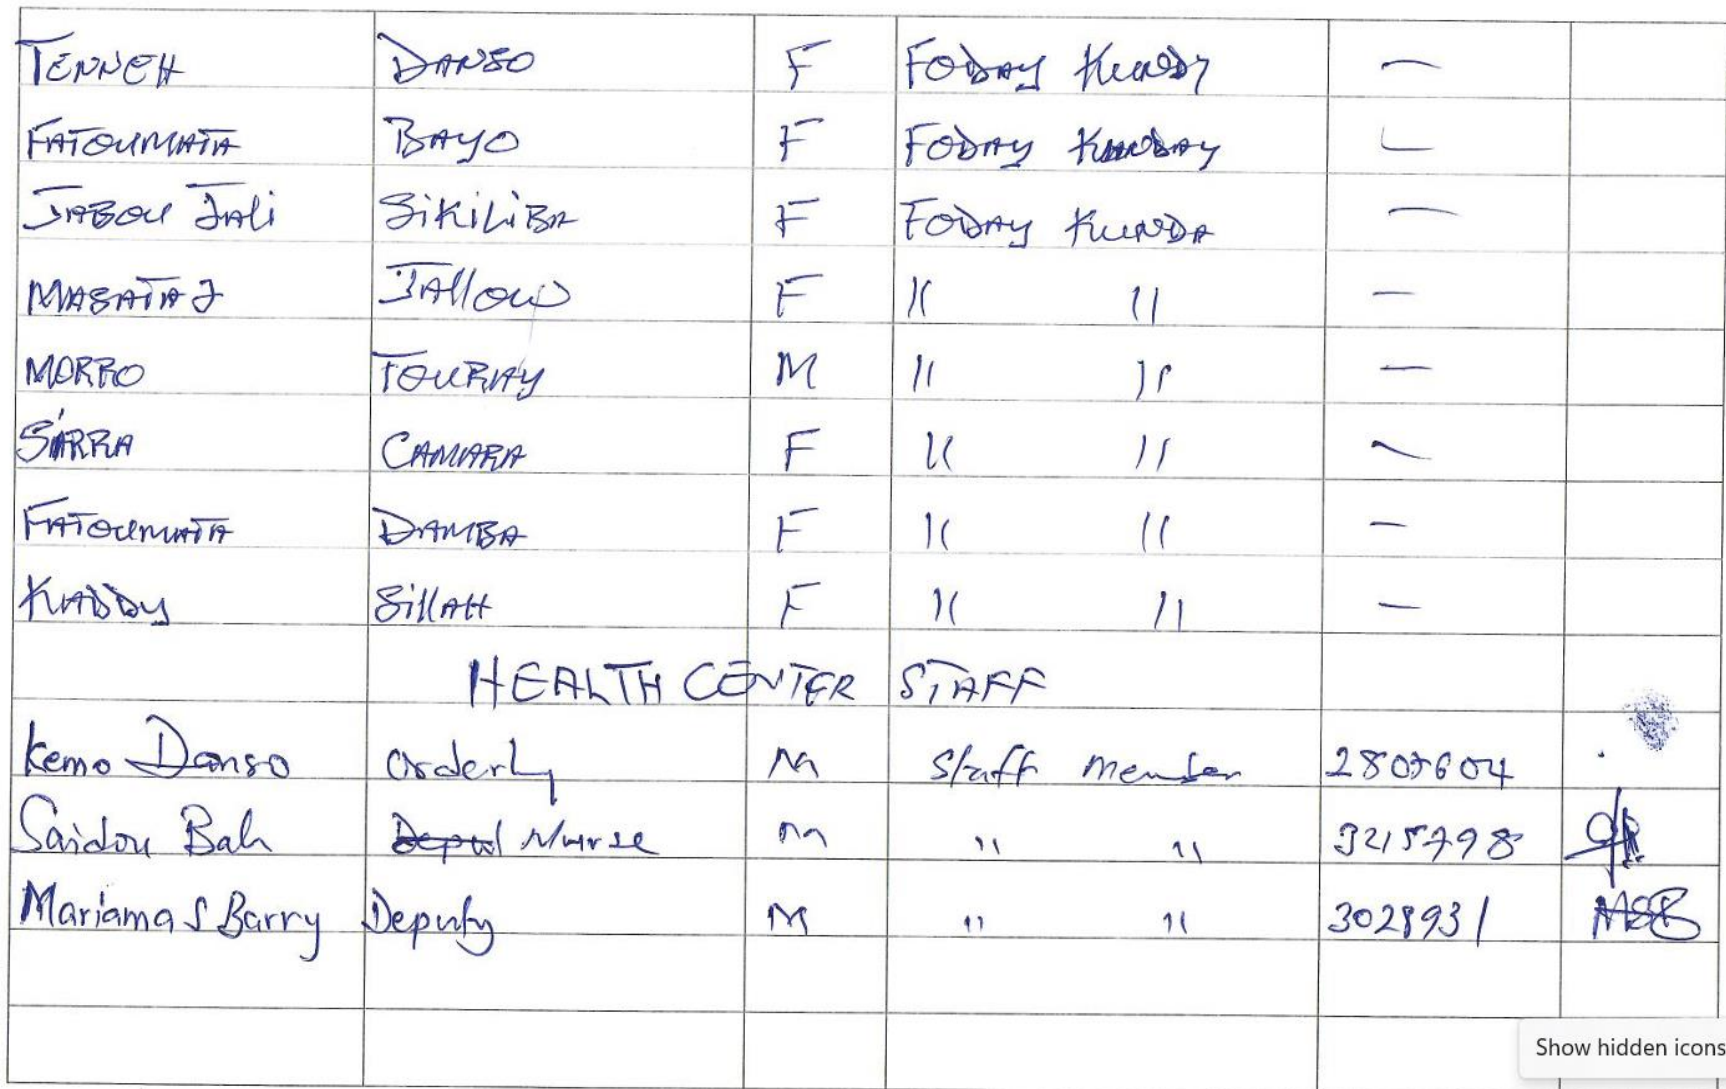 TENNEH DANSO F FODAY KUNDY —
FATOUMATA BAYO F FODAY KUNDAY —
JABOU JALI SIKILIBA F FODAY KUNDA —
MASATA J JALLOW F " " —
MORRO TOURAY M " " —
SARRA CAMARA F " " —
FATOUMATA DAMBA F " " —
KADDY SILLAH F " " —
HEALTH CENTER STAFF
Kemo Danso orderly M Staff member
Saidou Bah Nurse M " " 3215798
Mariama S Barry Deputy M " " 3028931 MSB
Show hidden icons